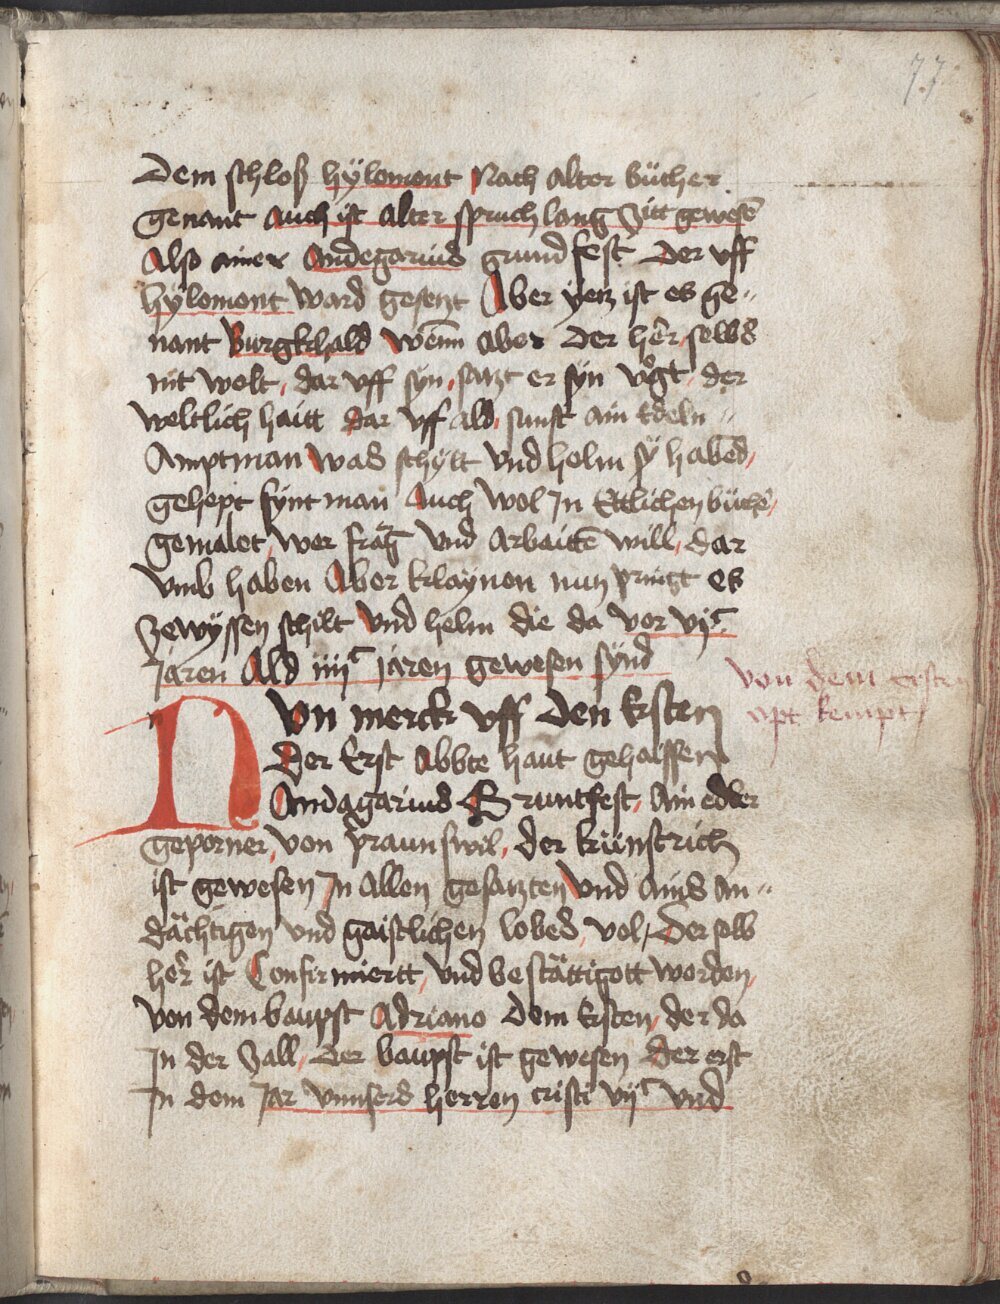 77
Dem schloß hÿlomont Nach alter bücher
genant auch ist alter spruch lang zitt gewesē
Also ainer Andegarius grund fest Der vff
hÿlomont ward gesetzt Aber yetz ist es ge„
nant Burgkhald wēnn aber Der her selbs
nit wolt dar vff syn satzt er syn vogt der
weltlich haitt dar vff ald sunst ain Edeln„
Amptman was schylt vnd helm sÿ habēd
gehept fynt man Auch wol In Ettlichen büchē
gemalet wer frāg vnd Arbaittē will dar
vmb haben Aber klaynen nun pringt es
zewÿssen schilt vnd helm die da vor vjͨ
jaren Ald iiijͨ jaren gewesen sÿnd
von dem ersten
apt kempt
Nvn merck vff den Ersten
Der Erst Abbte haut gehaissen
Andagarius Gruntfest Ain edler
geporner von praunswil der künstrich
ist gewesen In Allen gesatzten vnd ains an„
dächtigen vnd gaistlichen lobes vol Der selb
her ist Confirmiertt vnd bestättigott worden
von dem baupst Adriano Dem Ersten der da
In der zall Der baupst ist gewesen Der erst
In dem Jar vnnsers herren cristi vijͨ vnd